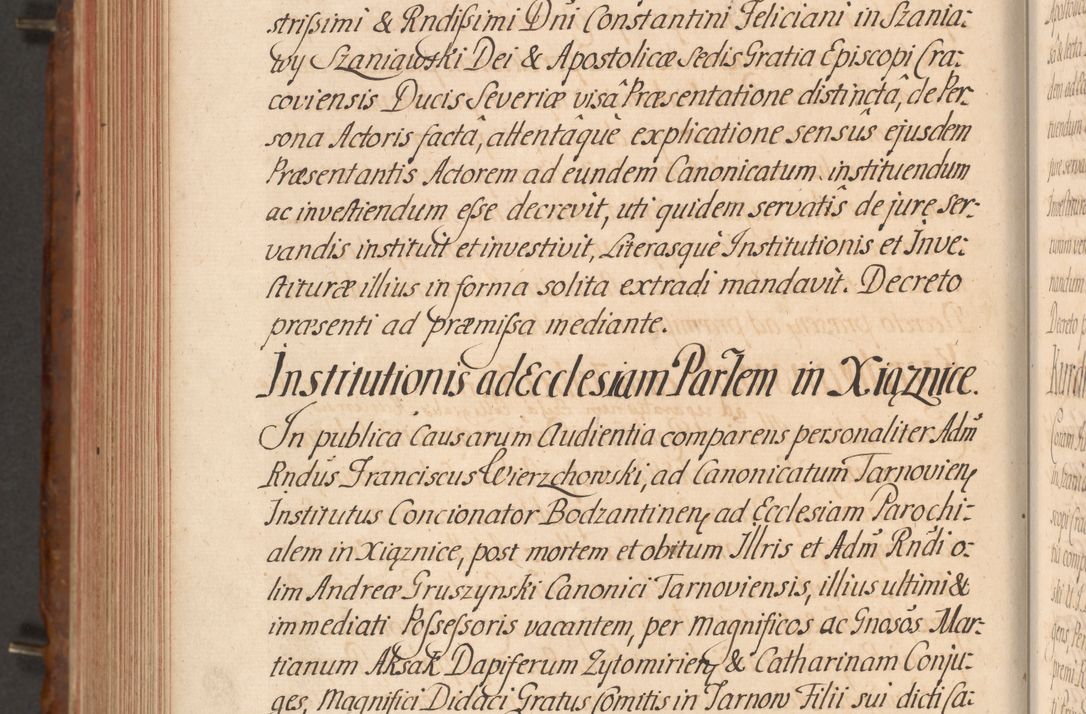 strißimi & Rndißimi Dni Constantini Feliciani in Szania:
wy Szaniawski Dei & Apostolicæ Sedis Gratia Episcopi Cra:
coviensis Ducis Severiæ visâ Præsentatione distinctâ, de Per:
sona Actoris factâ, attentâquè explicatione sensûs ejusdem
Præsentantis Actorem ad eundem Canonicatum instituendum
ac investiendum eße decrevit, uti quidem servatîs de jure Ser:
vandis instituit et investivit, Literasquè Institutionis et Inve:
stituræ illius in forma solita extradi mandavit. Decreto
præsenti ad præmißa mediante.
Institutionis ad Ecclesiam Parlem in Xiąznice.
In publica Causarum Audientia comparens personaliter Adm
Rndus Franciscus Wierzchowski, ad Canonicatum Tarnovien
Institutus Concionator Bodzantinen ad Ecclesiam Parochi:
alem in Xiąznice, post mortem et obitum Illris et Adm Rndi o:
lim Andreæ Gruszynski Canonici Tarnoviensis, illius ultimi &
immediati Poßeßoris vacantem, per Magnificos ac Gnosos Mar:
tianum Aksak Dapiferum Zytomirien & Catharinam Conju:
ges, Magnifici Didaci Gratus Comitis in Tarnow Filii sui dicti Ca: